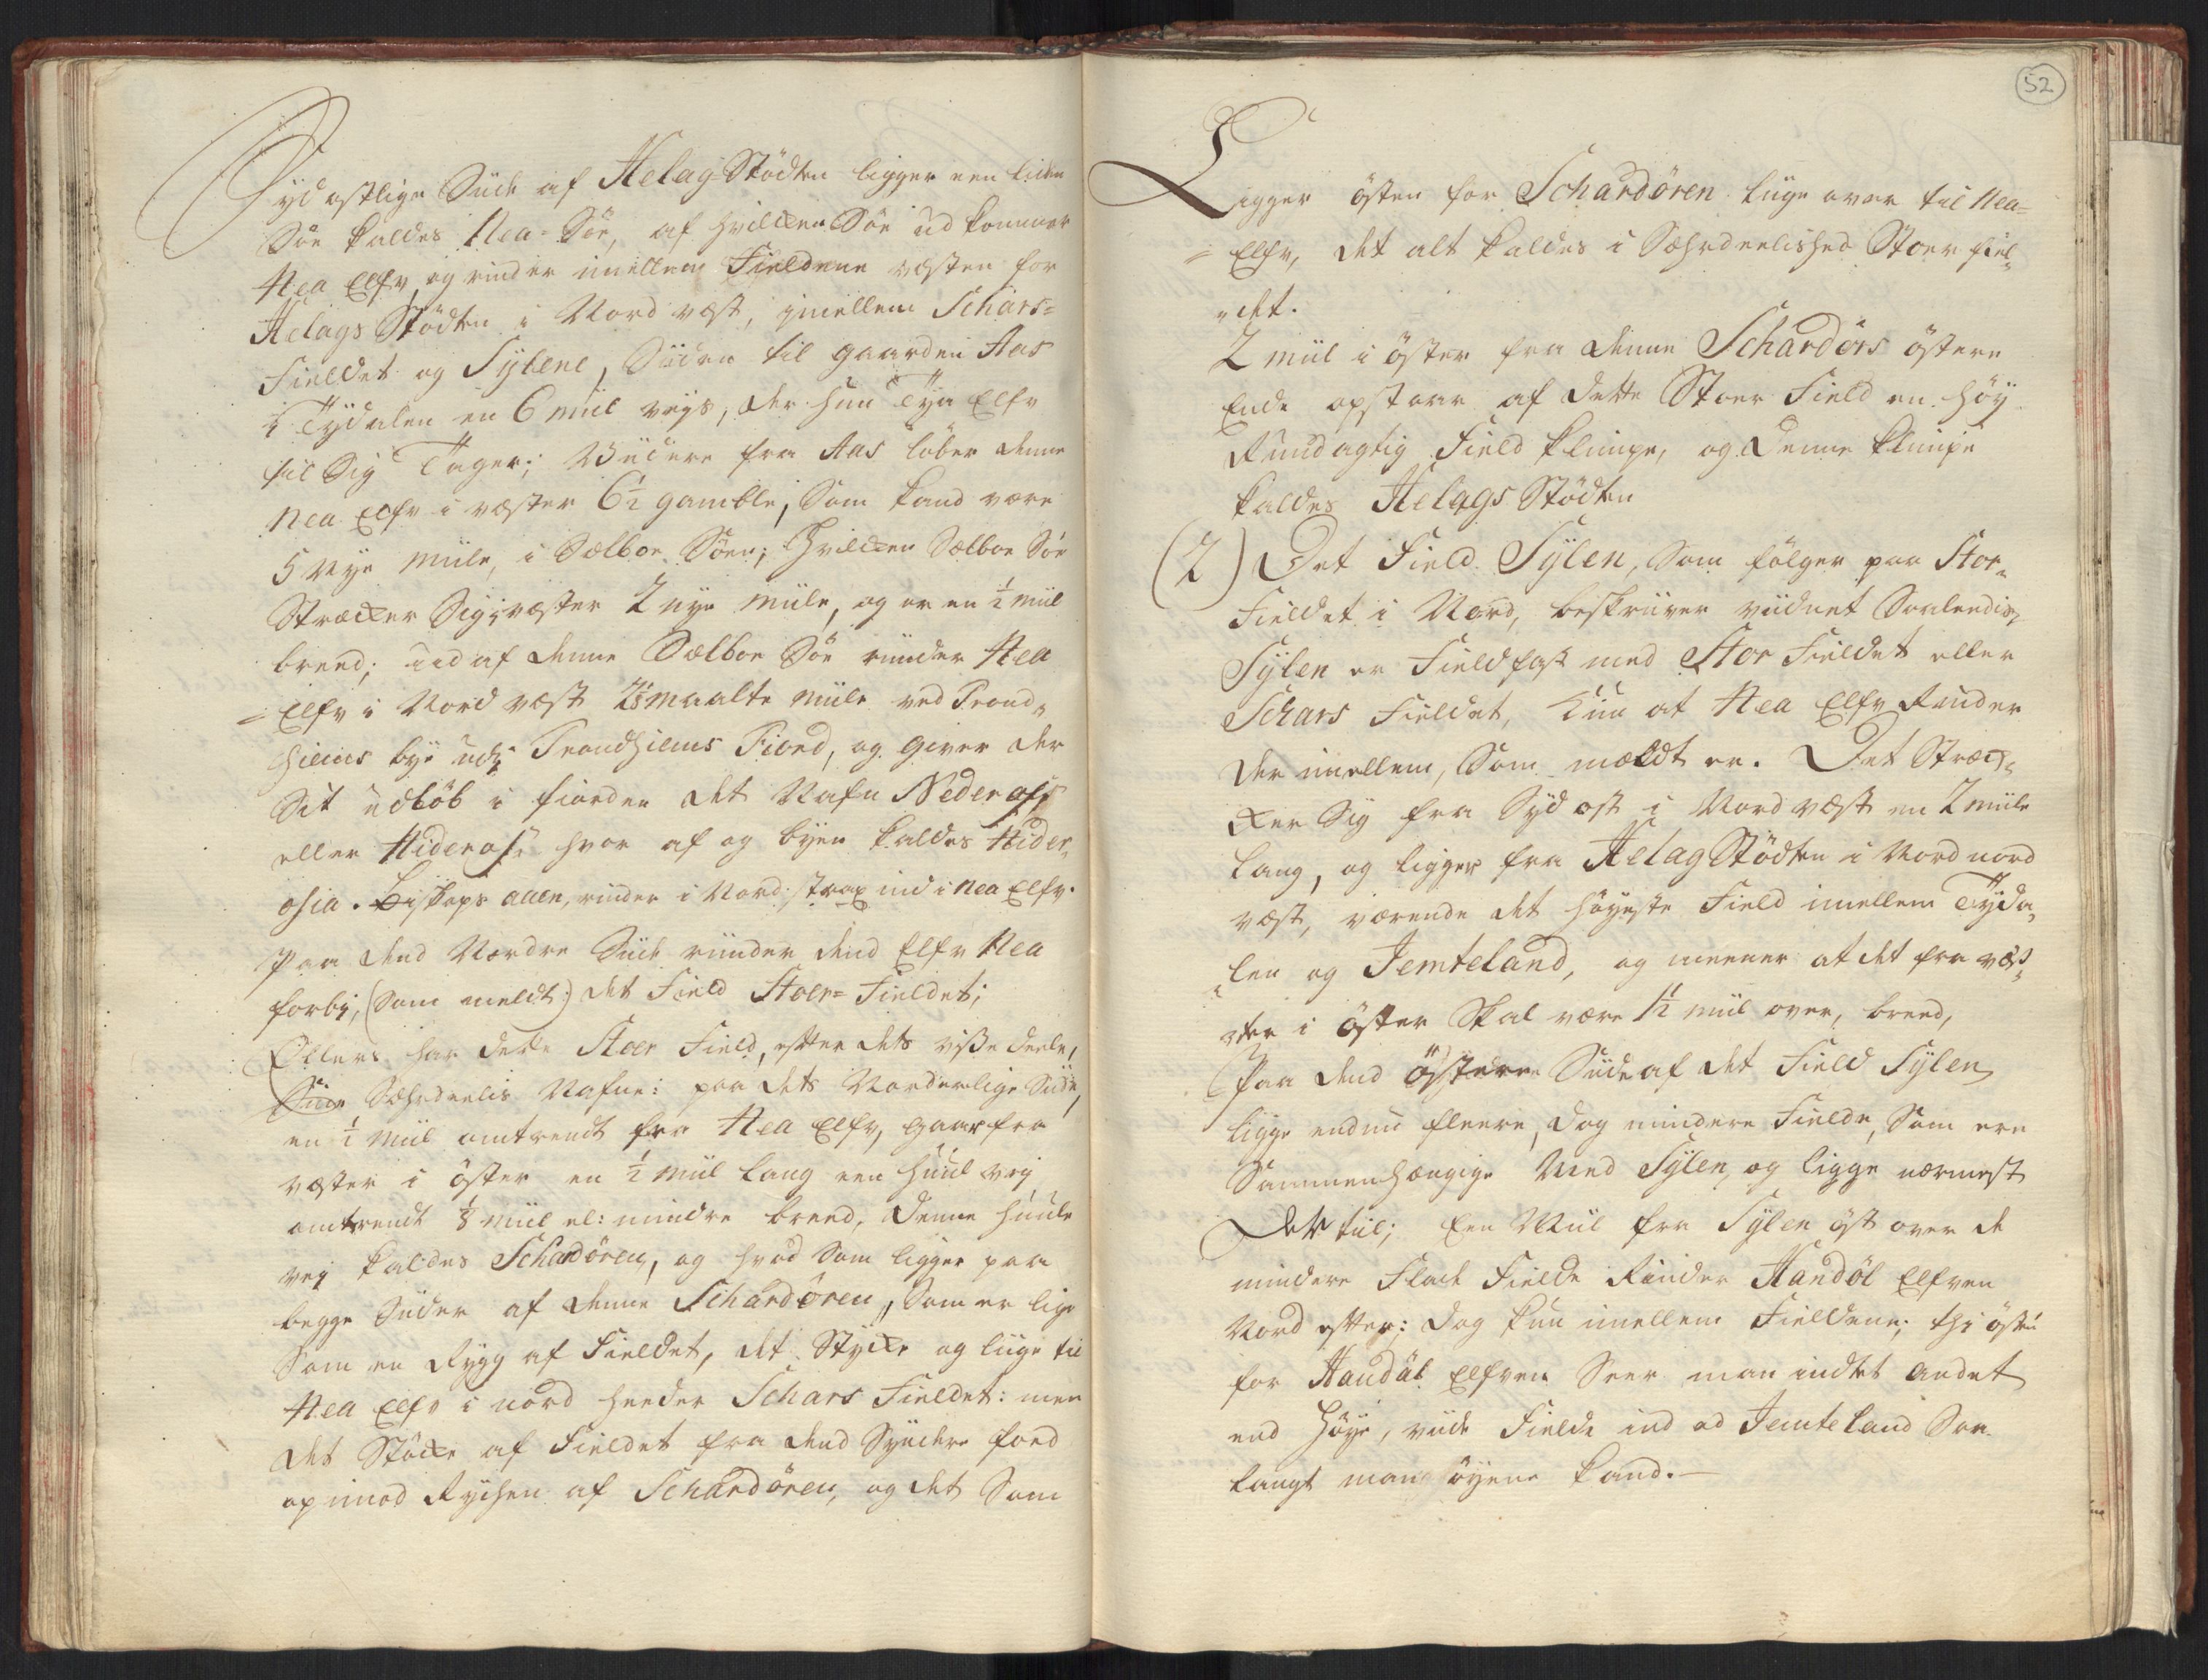 Syd ostlige Siide af Helag-Stødten ligger een liden
Söe kaldes Nea-Söe, af hvilcken Söe ud kommer
Nea Elfv, og rinder imellem Fieldene væsten for
Helags Stödten i Nord væst, imellem Schars=
Fieldet og Sylene, Siiden til gaarden Aas
i Tydalen en 6 miil veys, der hun Tya Elfv
til Sig Tager; Viidere fra Aas löber denne
Nea Elfv i væster 6½ gamble, Som kand være
5 Nye Miile, i Sælboe Söen; Hvilcken Sælboe Söe
Stræcker Sig i væster 2 nye Miile, og er en ½ miil
breed; ud af denne Sælboe Söe rinder Nea
= Elfv i Nord væst 2⅛ maalte Miile ved Trond„
hiems bye udj Trondhiems Fiord, og giver der
Sit udlöb i fiorden det Nafn Nedeross
eller Nideross hvor af og byen kaldes Nider„
osia. Biskops aaen, rinder i Nord strax ind i Nea Elfv.
Paa dend Nordre Siide rinder dend Elfv Nea
forbj, (Som meldt) det Field Stoer=Fieldet;
Ellers har dette Stoer Field, efter dets visse deele,
Siide Sæhrdeelis Nafne: paa dets Norderlige Siide,
en ½ Miil omtrendt fra Nea Elfv, gaar fra
væster i öster en ½ Miil lang een huul vej
omtrendt ⅛ Miil el: mindre breed, denne huule
vej kaldes Schardören, og hvad Som ligger paa
begge Siider af denne Schardören, Som er lige
Som en Rygg af Fieldet, det Stycke og liige til
Nea Elfv i nord heeder Schars Fieldet: men
det Stöcke af Fieldet fra dend Syndere foed
op imod Ryggen af Schardören, og det Som
52
Ligger östen for Schardören liige over til Nea=
= Elfv, det alt kaldes i Sæhrdeelished Stoer fiel„
„det.
2 miil i öster fra denne Schardörs östere
Ende opstaar af dette Stoer Field en höy
Rundagtig Field klimpe, og denne klimpe
kaldes Helags Stödten
(2) Det Field Sylen, Som fölger paa Stor„
Fieldet i Nord, beskriiver viidnet Saaledis,
Sylen er Fieldfast med Stor Fieldet eller
Schars Fieldet, kun at Nea Elfv Rinder
der imellem, Som meldt er. Det Stræc„
ker Sig fra Syd ost i Nord væst en 2 miile
lang, og ligger fra Helag Stödten i Nord nord
væst, værende det höyeste Field imellem Tyda„
„len og Jemteland, og meener at det fra væs„
„ter i öster Skal være 1½ miil over, breed,
Paa dend östere Siide af det Field Sylen
ligge endnu fleere, dog mindere Fielde, Som ere
Sammenhængige Med Sylen, og ligge nærmest
Der til; Een Miil fra Sylen öst over de
mindere Flade Fielde Rinder Handöl Elfven
Nord efter; dog kun imellem Fieldene; thi östen
for Handöl Elfven Seer man indtet andet
end höye, viide Fielde ind ad Jemteland Saa
langt man öyene kand.—